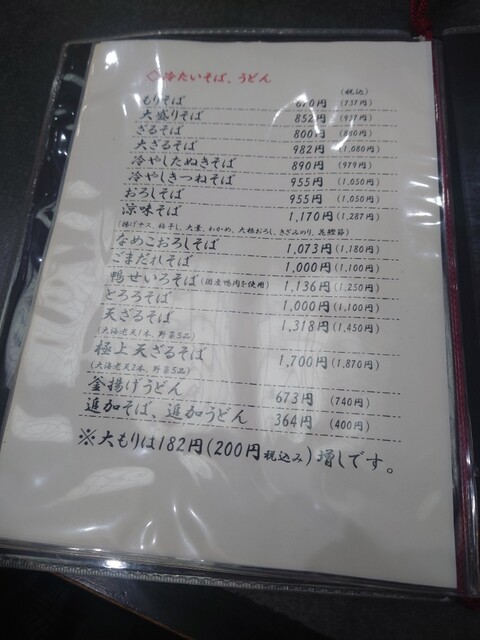 ◇冷たいそば、うどん
(税込)
もりそば 670円 (737円)
大盛りそば 852円 (937円)
ざるそば 800円 (880円)
大ざるそば 982円 (1,080円)
冷やしたぬきそば 890円 (979円)
冷やしきつねそば 955円 (1,050円)
おろしそば 955円 (1,050円)
涼味そば 1,170円 (1,287円)
(揚げナス、梅干し、大葉、わかめ、大根おろし、きざみのり、花鰹節)
なめこおろしそば 1,073円 (1,180円)
ごまだれそば 1,000円 (1,100円)
鴨せいろそば(国産鴨肉を使用) 1,136円 (1,250円)
とろろそば 1,000円 (1,100円)
天ざるそば 1,318円 (1,450円)
(大海老天1本、野菜5品)
極上天ざるそば 1,700円 (1,870円)
(大海老天2本、野菜5品)
釜揚げうどん 673円 (740円)
追加そば、追加うどん 364円 (400円)
※大もりは182円(200円税込み)増しです。